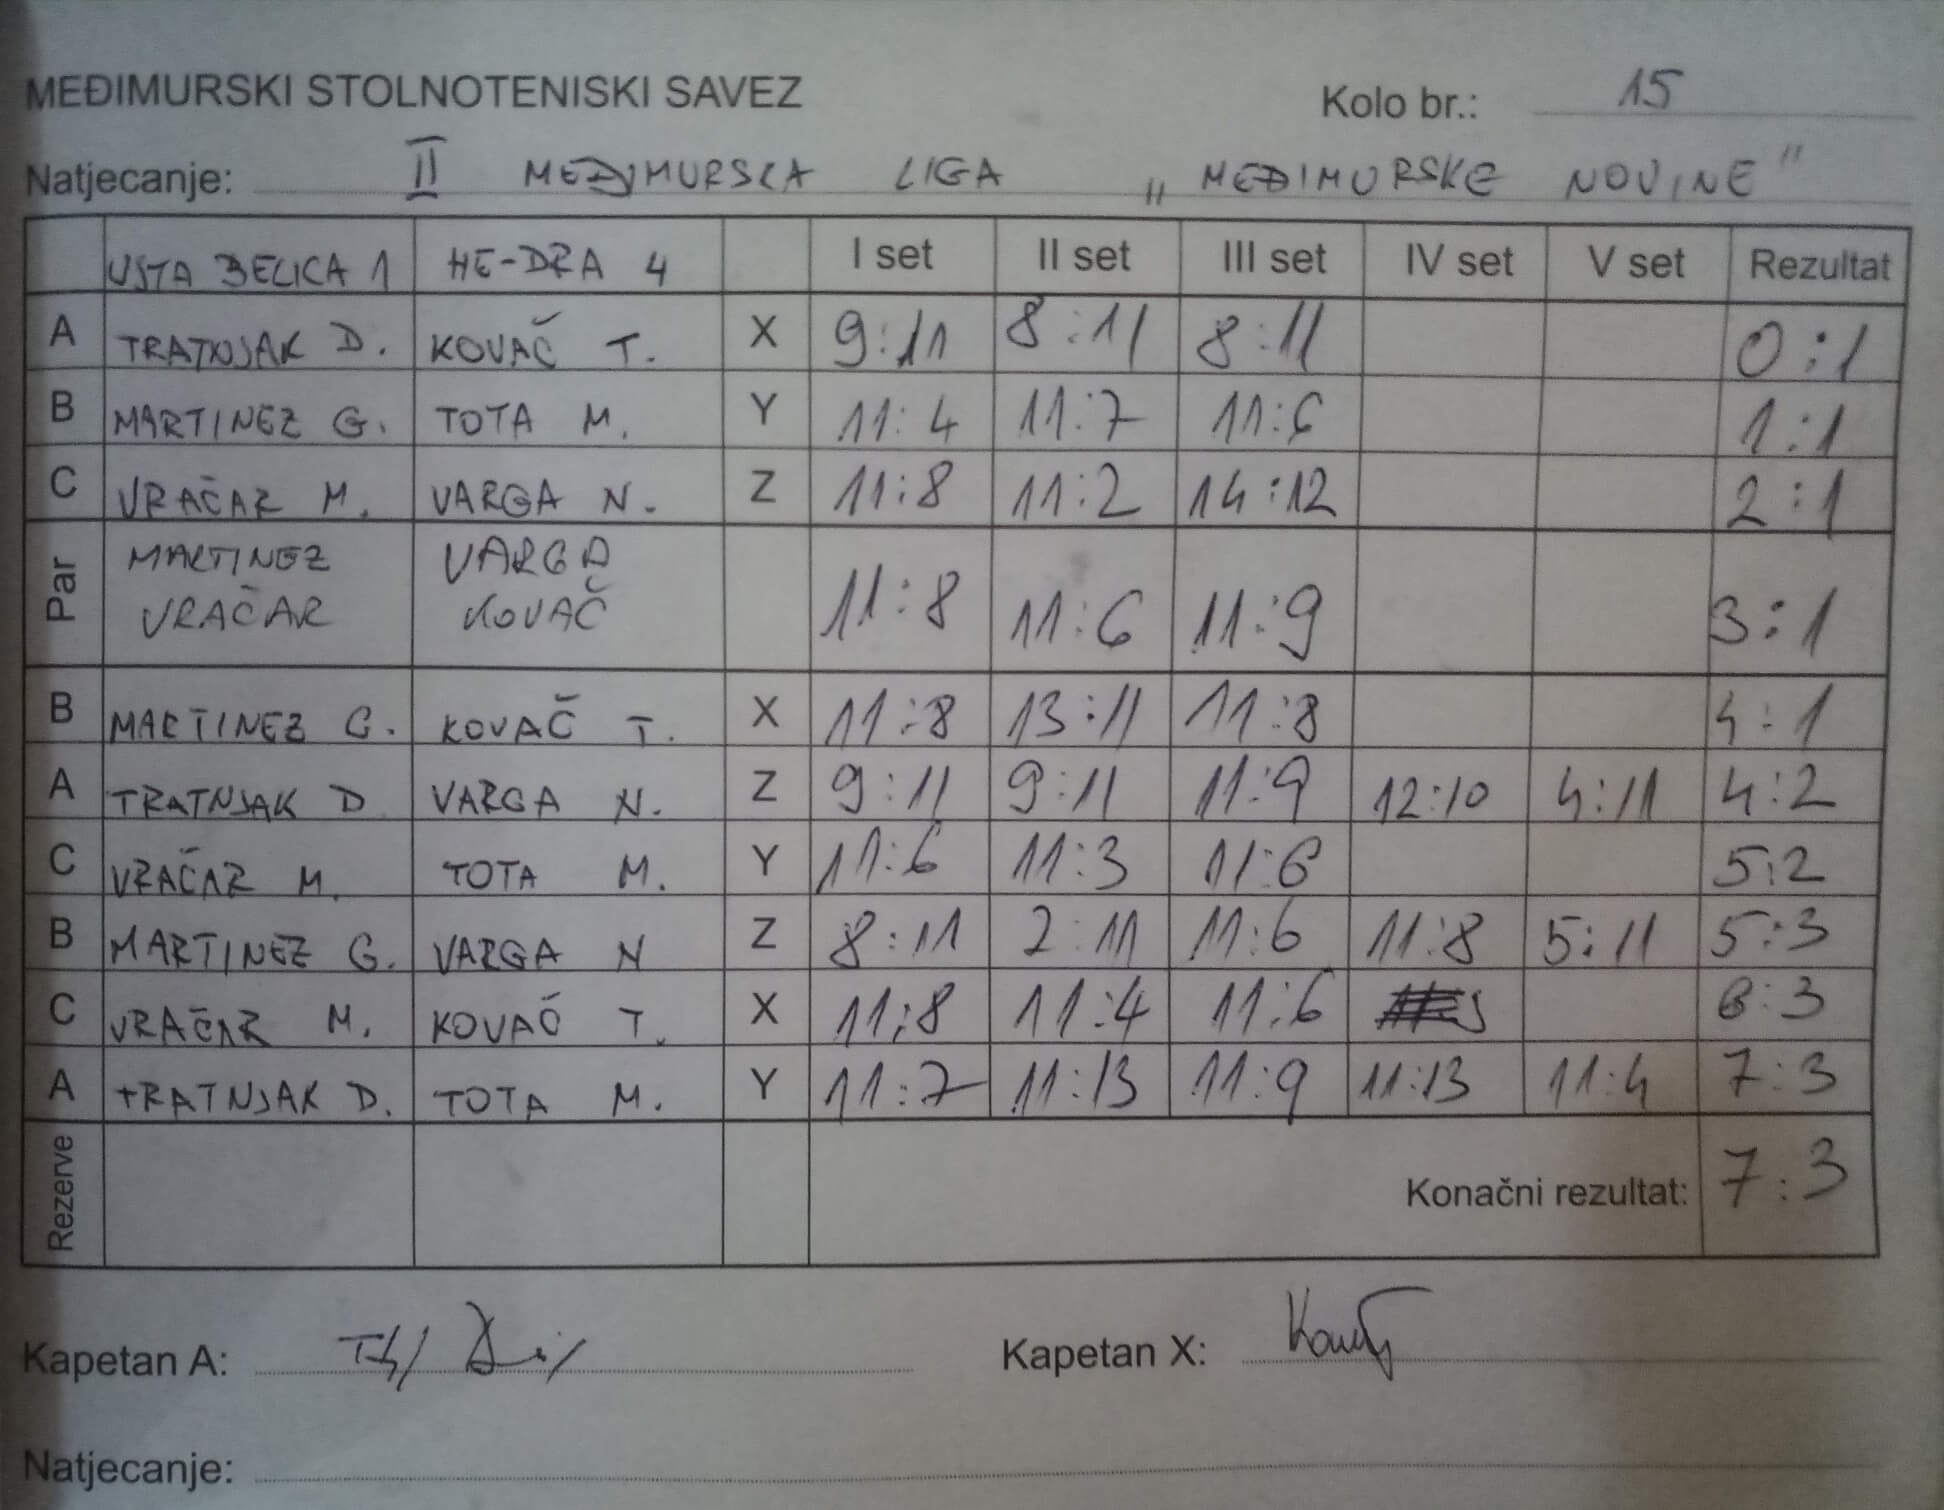 MEĐIMURSKI STOLNOTENISKI SAVEZ Kolo br.: 15
Natjecanje: II MEĐIMURSKA LIGA "MEĐIMURSKE NOVINE"
USTA BELICA 1 HE-DRA 4 I set II set III set IV set V set Rezultat
A TRATNJAK D. KOVAČ T. X 9:11 8:11 8:11 0:1
B MARTINEZ G. TOTA M. Y 11:4 11:7 11:6 1:1
C VRAČAR M. VARGA N. Z 11:8 11:2 14:12 2:1
Par MARTINEZ VRAČAR VARGA KOVAČ 11:8 11:6 11:9 3:1
B MARTINEZ G. KOVAČ T. X 11:8 13:11 11:8 4:1
A TRATNJAK D VARGA N. Z 9:11 9:11 11:9 12:10 4:11 4:2
C VRAČAR M. TOTA M. Y 11:6 11:3 11:6 5:2
B MARTINEZ G. VARGA N Z 8:11 2:11 11:6 11:8 5:11 5:3
C VRAČAR M. KOVAČ T. X 11:8 11:4 11:6 6:3
A TRATNJAK D. TOTA M. Y 11:7 11:13 11:9 11:13 11:4 7:3
Rezerve Konačni rezultat: 7:3
Kapetan A: Kapetan X:
Natjecanje: